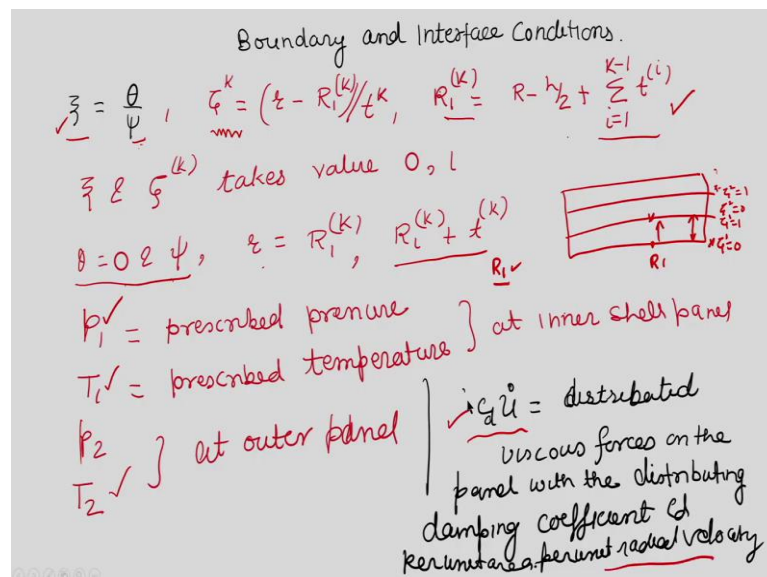 Boundary and Interface Conditions.
ξ = θ/ψ, ζ^k = (r - R_1^(k))/t^k, R_1^(k) = R - h/2 + Σ_{i=1}^{K-1} t^(i) ✓
ξ & ζ^(k) takes value 0, 1
θ = 0 & ψ, r = R_1^(k), R_1^(k) + t^(k)
R_1 ✓
ζ²=1
ζ²=0
ζ¹=1
ζ¹=0
R_1
p_1 ✓ = prescribed pressure
T_1 ✓ = prescribed temperature } at inner shell panel
p_2
T_2 ✓ } at outer panel
✓ c_d u̇ = distributed
viscous forces on the
panel with the distributing
damping coefficient Cd
per unit area per unit radial velocity